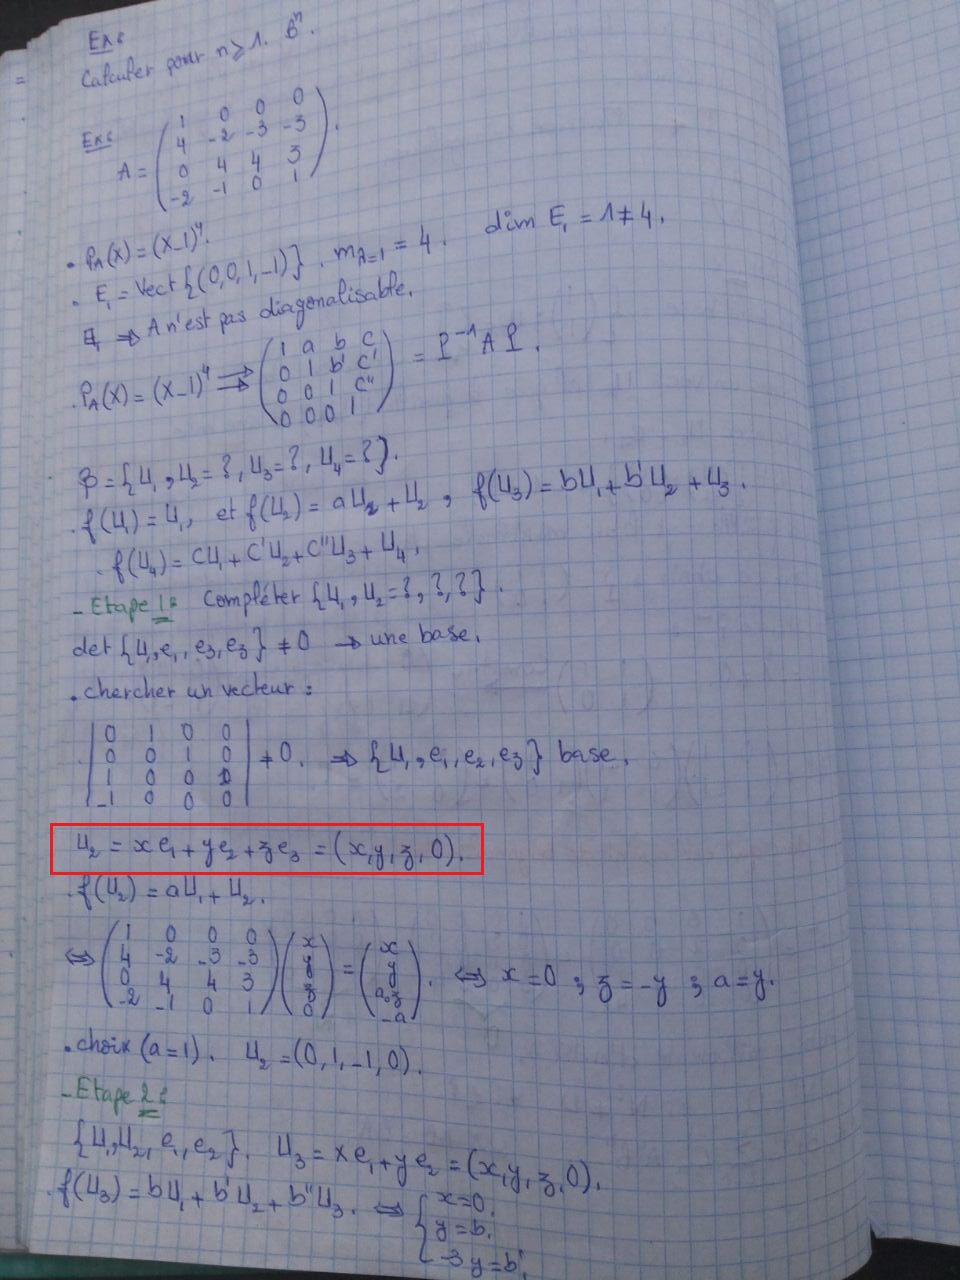 Ex:
Calculer pour n ≥ 1. Bⁿ.
Ex:
A = 
( 1 0 0 0 )
( 4 -2 -3 -3 )
( 0 4 4 3 )
( -2 -1 0 1 ).
• P_A(X) = (X-1)⁴.
• E₁ = Vect{(0,0,1,-1)}. m_{λ=1} = 4. dim E₁ = 1 ≠ 4.
⇒ A n'est pas diagonalisable.
• P_A(X) = (X-1)⁴ ⟹
( 1 a b c )
( 0 1 b' c' )
( 0 0 1 c'' )
( 0 0 0 1 )
= P⁻¹ A P.
β = {U₁, U₂ = ?, U₃ = ?, U₄ = ?}.
• f(U₁) = U₁, et f(U₂) = aU₂ + U₂, f(U₃) = bU₁ + b'U₂ + U₃.
• f(U₄) = CU₁ + C'U₂ + C''U₃ + U₄.
- Etape 1: Compléter {U₁, U₂ = ?, ?, ?}.
det {U₁, e₁, e₃, e₃} ≠ 0 → une base.
• chercher un vecteur :
| 0 1 0 0 |
| 0 0 1 0 |
| 1 0 0 1 |
| -1 0 0 0 |
≠ 0. ⇒ {U₁, e₁, e₂, e₃} base.
U₂ = xe₁ + ye₂ + ze₃ = (x,y,z,0).
• f(U₂) = aU₁ + U₂.
⇔
( 1 0 0 0 ) ( x ) ( x )
( 4 -2 -3 -3 ) ( y ) = ( y )
( 0 4 4 3 ) ( z ) ( a+z )
( -2 -1 0 1 ) ( 0 ) ( -a ).
⇔ x = 0 ; z = -y ; a = y.
• choix (a=1). U₂ = (0,1,-1,0).
- Etape 2:
{U₁, U₂, e₁, e₂}. U₃ = xe₁ + ye₂ = (x,y,z,0).
• f(U₃) = bU₁ + b'U₂ + b''U₃. ⇔
{ x = 0.
y = b.
-3y = b'.